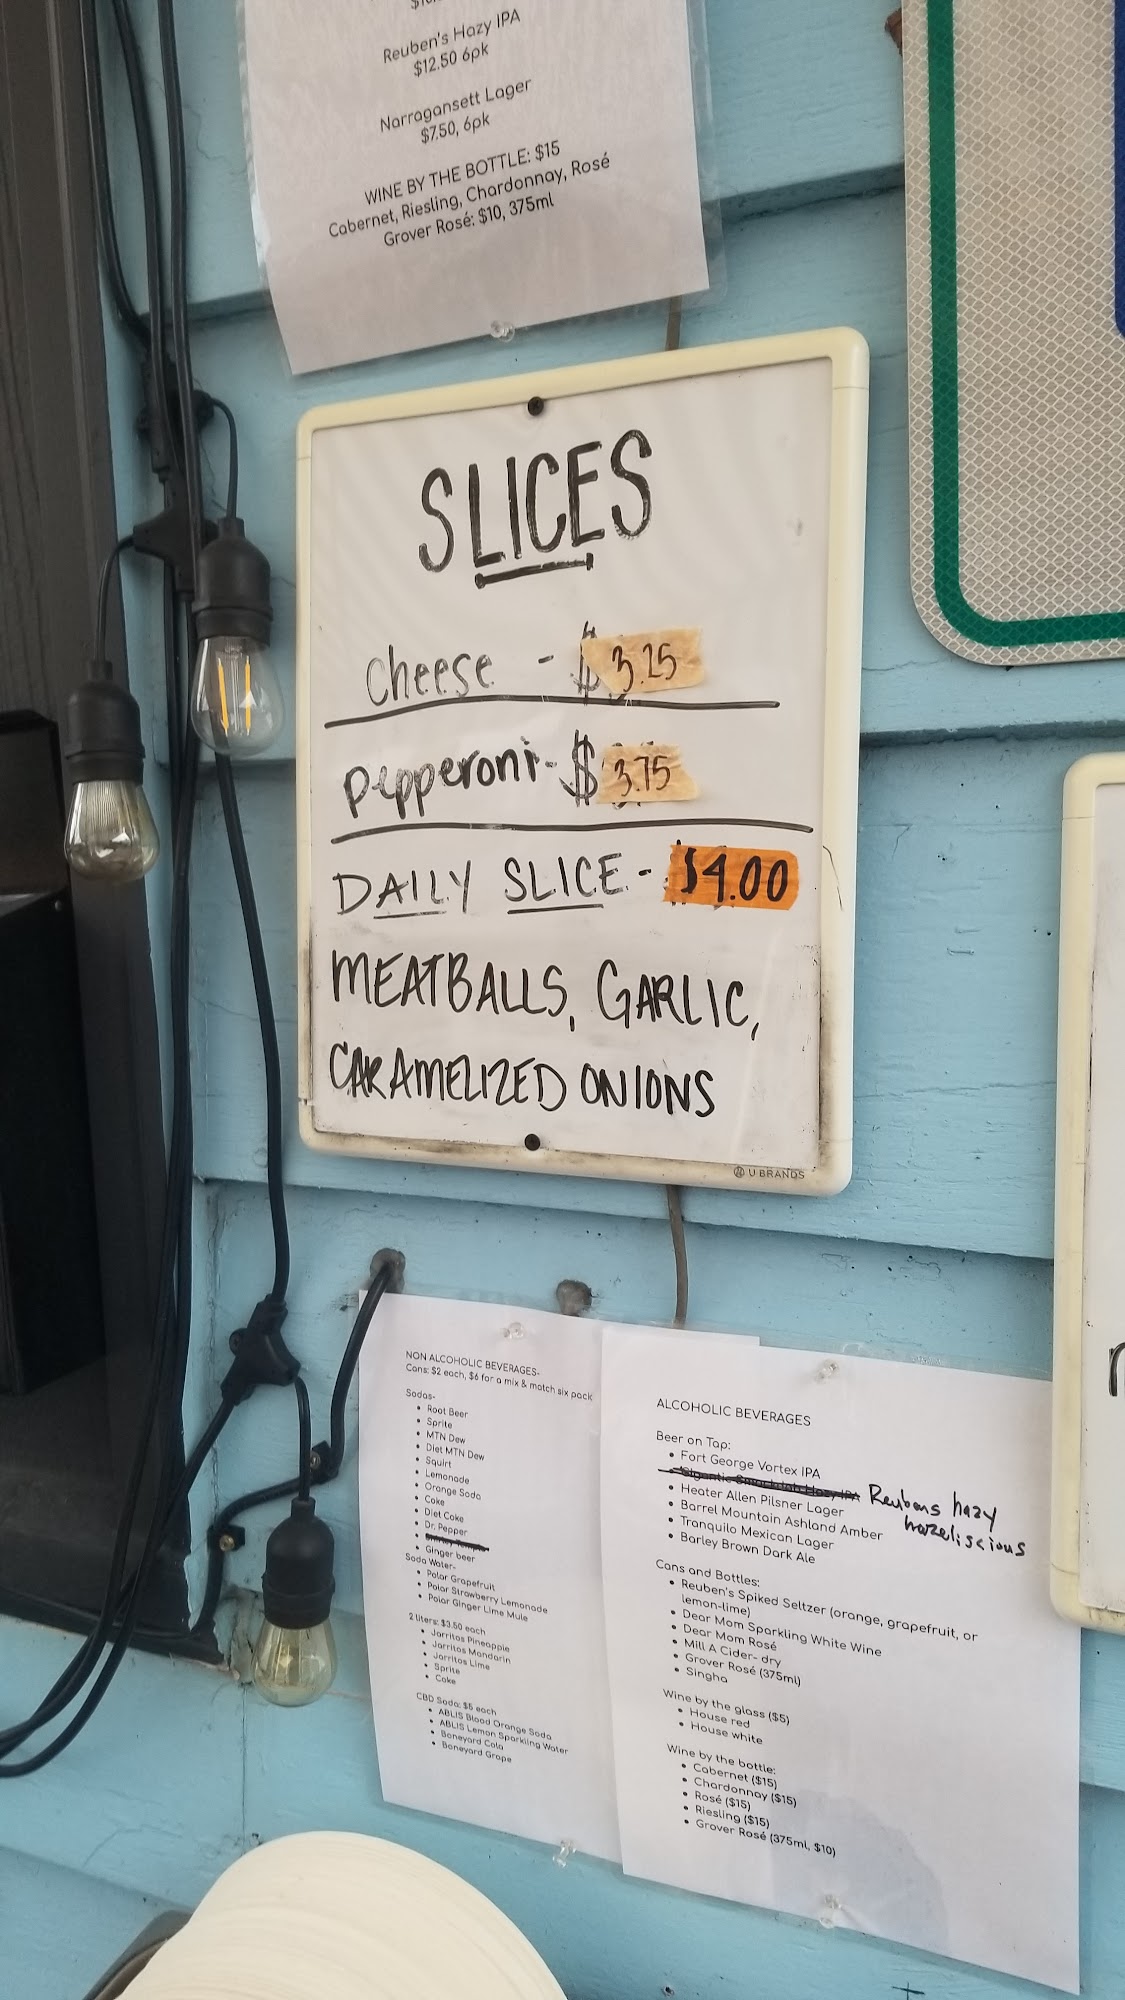 Reuben's Hazy IPA
$12.50 6pk
Narragansett Lager
$7.50, 6pk
WINE BY THE BOTTLE: $15
Cabernet, Riesling, Chardonnay, Rosé
Grover Rosé: $10, 375ml
SLICES
Cheese - $3.25
Pepperoni - $3.75
DAILY SLICE - $4.00
MEATBALLS, GARLIC,
CARAMELIZED ONIONS
U BRANDS
NON ALCOHOLIC BEVERAGES-
Cans: $2 each, $6 for a mix & match six pack
Sodas-
• Root Beer
• Sprite
• MTN Dew
• Diet MTN Dew
• Squirt
• Lemonade
• Orange Soda
• Coke
• Diet Coke
• Dr. Pepper
• Ginger beer
Soda Water-
• Polar Grapefruit
• Polar Strawberry Lemonade
• Polar Ginger Lime Mule
2 liters: $3.50 each
• Jarritos Pineapple
• Jarritos Mandarin
• Jarritos Lime
• Sprite
• Coke
CBD Soda: $5 each
• ABLIS Blood Orange Soda
• ABLIS Lemon Sparkling Water
• Boneyard Cola
• Boneyard Grape
ALCOHOLIC BEVERAGES
Beer on Tap:
• Fort George Vortex IPA
Reubens hazy
hazeliscious
• Heater Allen Pilsner Lager
• Barrel Mountain Ashland Amber
• Tranquilo Mexican Lager
• Barley Brown Dark Ale
Cans and Bottles:
• Reuben's Spiked Seltzer (orange, grapefruit, or
lemon-lime)
• Dear Mom Sparkling White Wine
• Dear Mom Rosé
• Mill A Cider- dry
• Grover Rosé (375ml)
• Singha
Wine by the glass ($5)
• House red
• House white
Wine by the bottle:
• Cabernet ($15)
• Chardonnay ($15)
• Rosé ($15)
• Riesling ($15)
• Grover Rosé (375ml, $10)